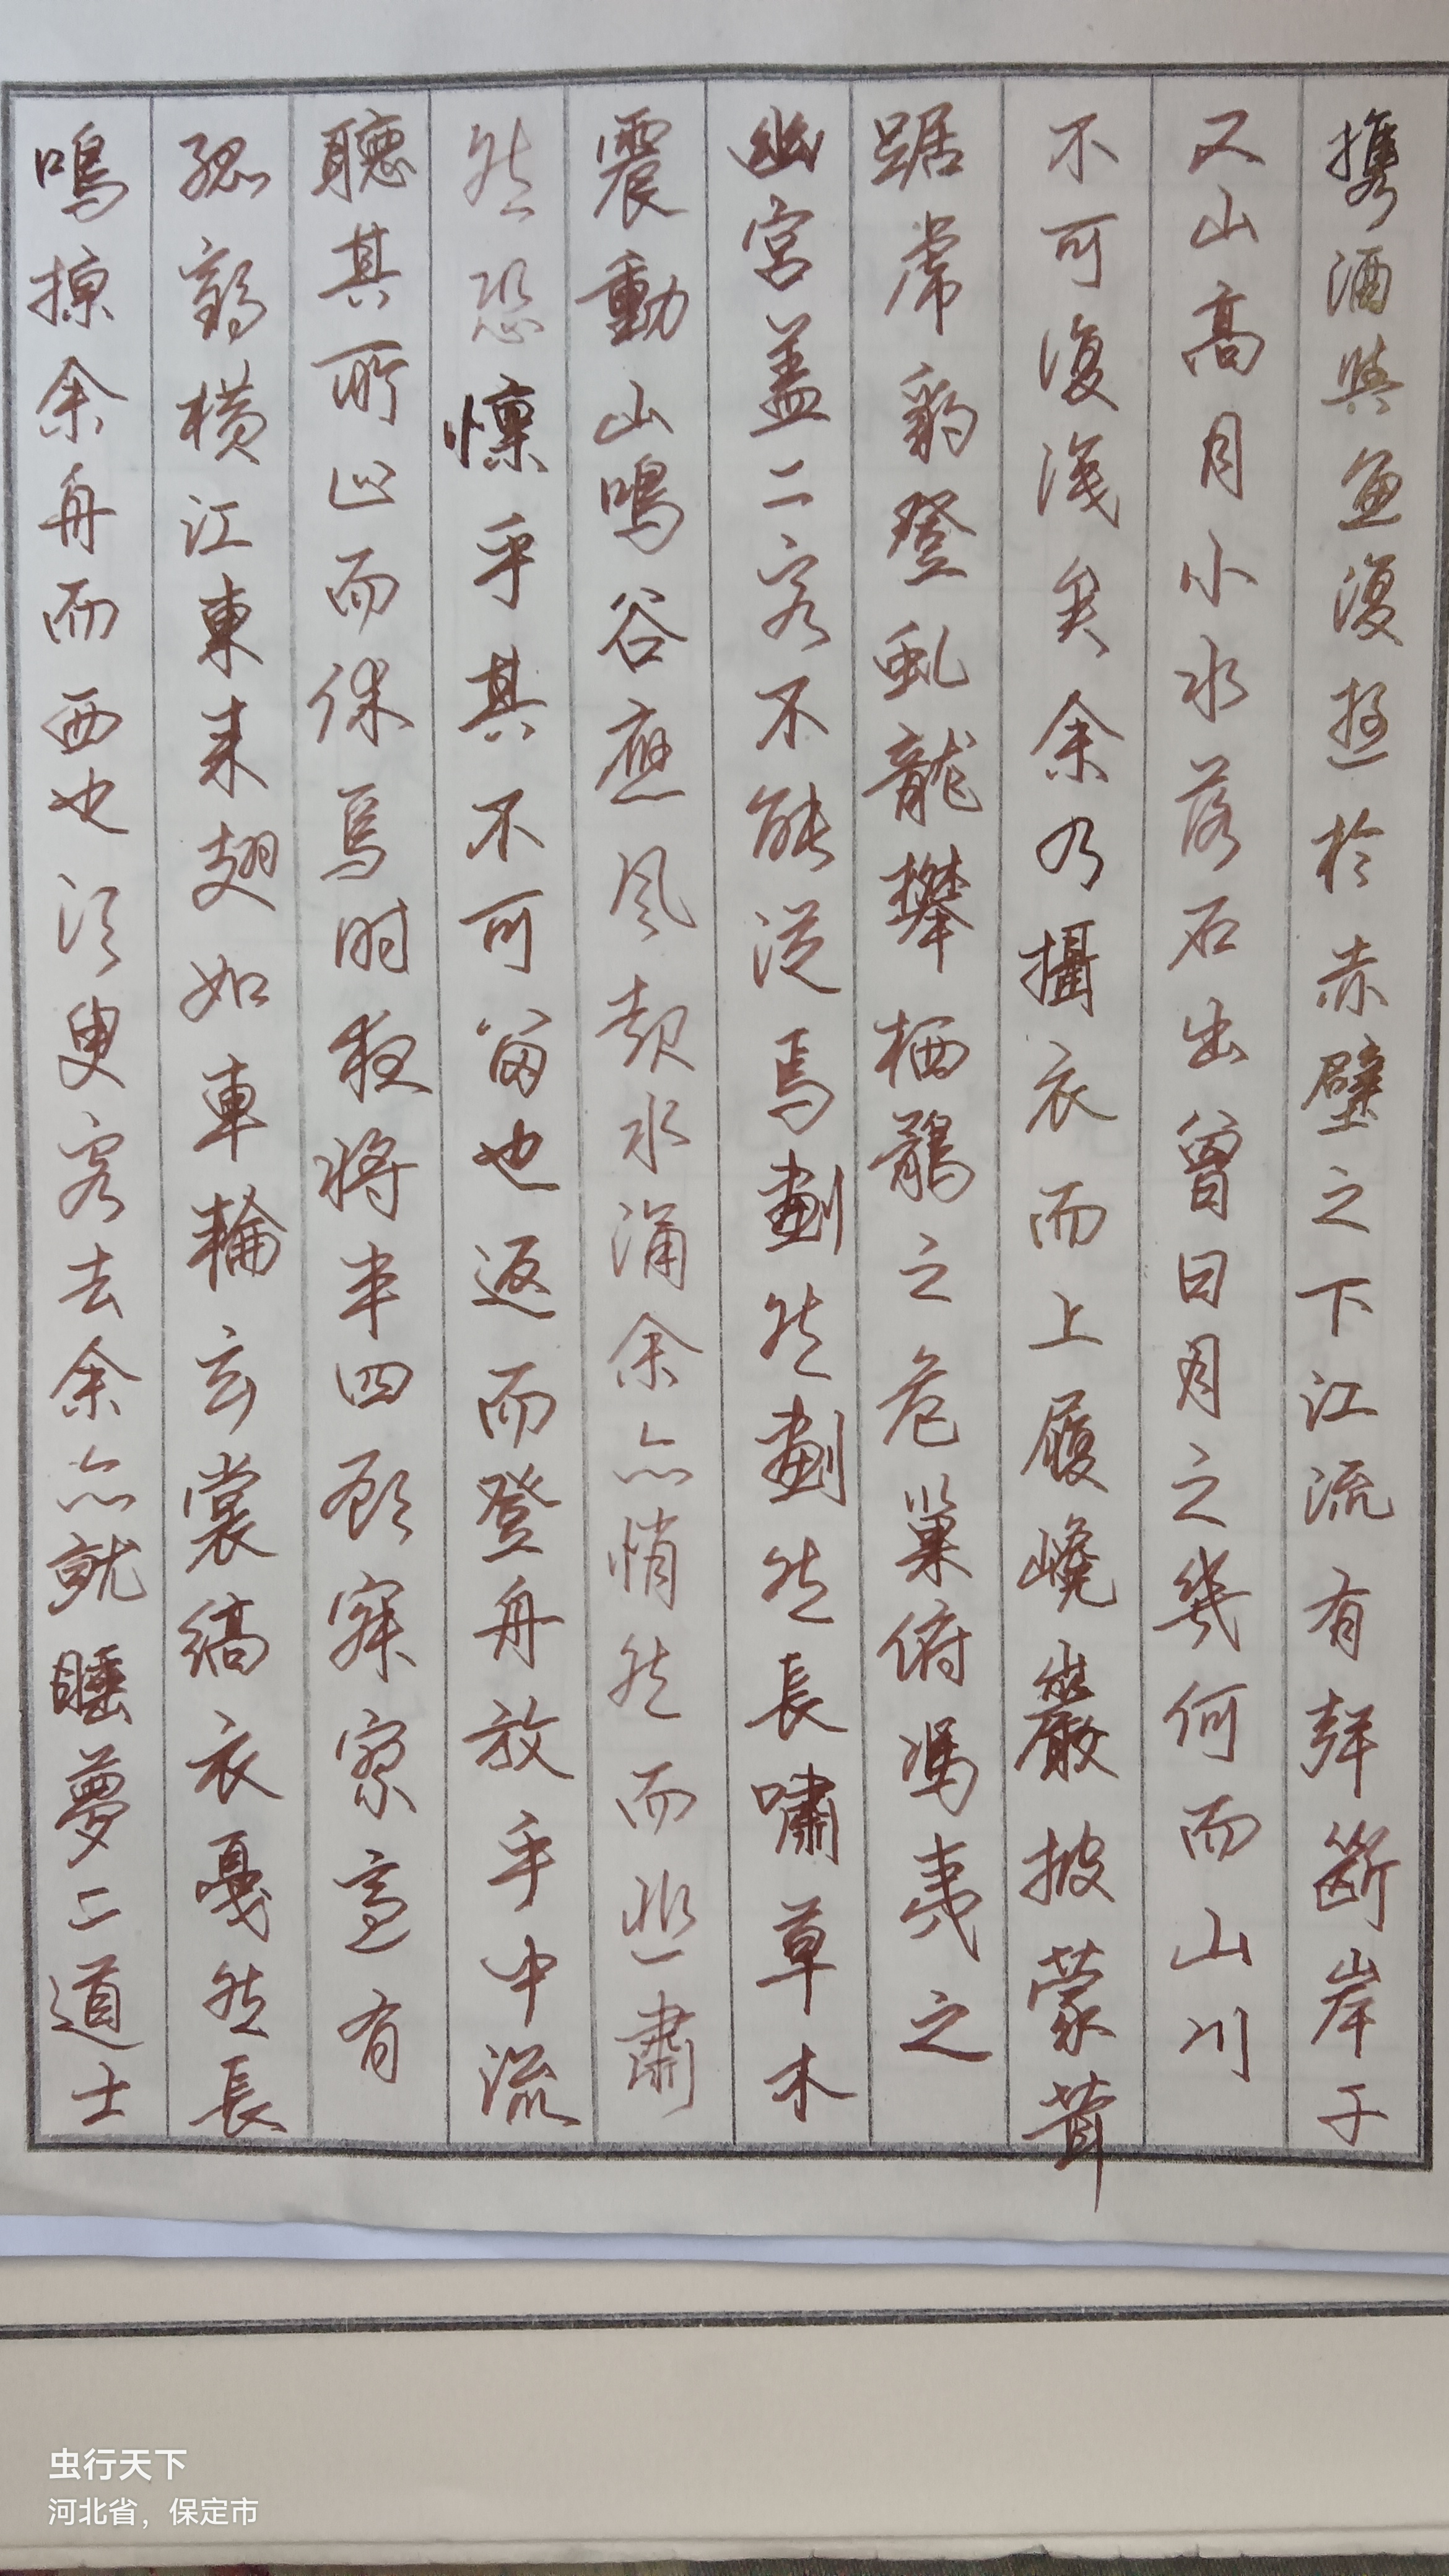 攜酒與魚復遊於赤壁之下江流有聲斷岸千
尺山高月小水落石出曾日月之幾何而山川
不可復淺矣余乃攝衣而上履巉巖披蒙茸
踞虎豹登虬龍攀栖鶻之危巢俯馮夷之
幽宮盖二客不能從焉劃然劃然長嘯草木
震動山鳴谷應風起水涌余亦悄然而悲肅
然恐懍乎其不可留也返而登舟放乎中流
聽其所止而休焉時夜將半四顧寂寥適有
孤鶴橫江東来翅如車輪玄裳縞衣戛然長
鳴掠余舟而西也須臾客去余亦就睡夢二道士
虫行天下
河北省，保定市